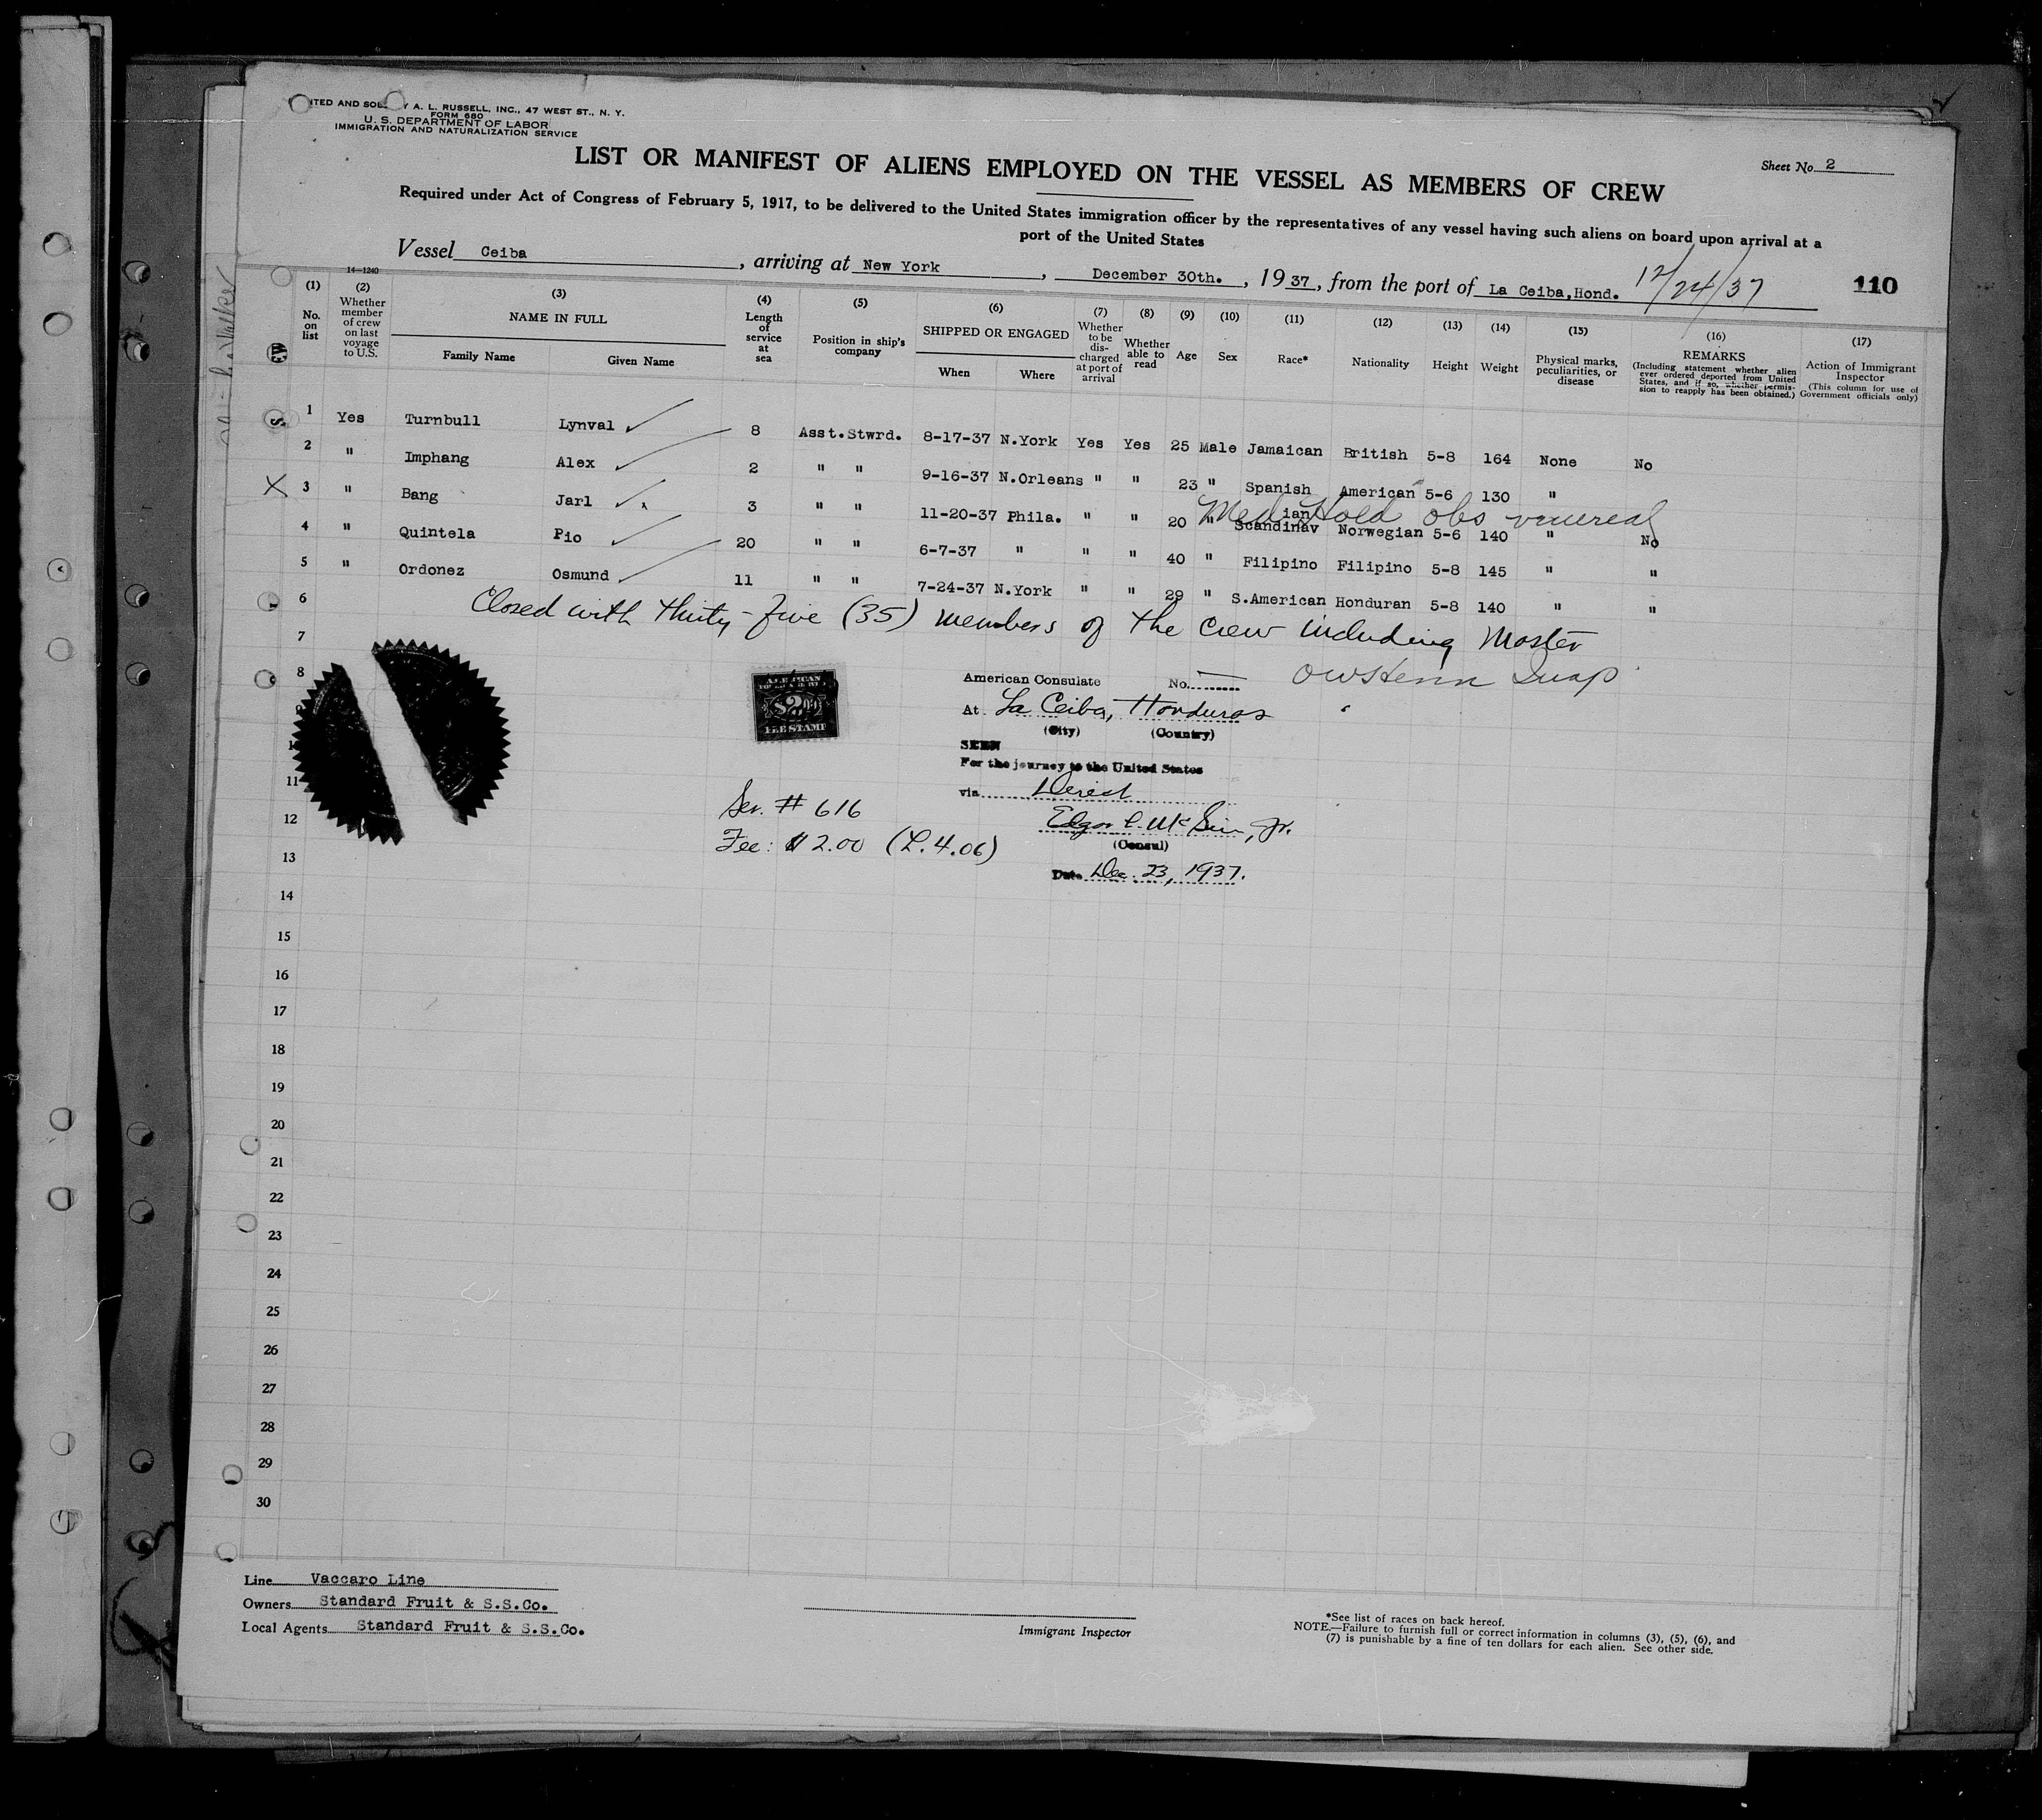 ITED AND SOL Y A. L. RUSSELL, INC., 47 WEST ST., N. Y.
FORM 680
U. S. DEPARTMENT OF LABOR
IMMIGRATION AND NATURALIZATION SERVICE
LIST OR MANIFEST OF ALIENS EMPLOYED ON THE VESSEL AS MEMBERS OF CREW
Sheet No. 2
Required under Act of Congress of February 5, 1917, to be delivered to the United States immigration officer by the representatives of any vessel having such aliens on board upon arrival at a
port of the United States
Vessel Ceiba, arriving at New York, December 30th., 1937, from the port of La Ceiba, Hond. 12/24/37 110
14—1240
(1) No. on list
(2) Whether member of crew on last voyage to U.S.
(3) NAME IN FULL
Family Name Given Name
(4) Length of service at sea
(5) Position in ship's company
(6) SHIPPED OR ENGAGED
When Where
(7) Whether to be discharged at port of arrival
(8) Whether able to read
(9) Age
(10) Sex
(11) Race*
(12) Nationality
(13) Height
(14) Weight
(15) Physical marks, peculiarities, or disease
(16) REMARKS (Including statement whether alien ever ordered deported from United States, and if so, whether permission to reapply has been obtained.)
(17) Action of Immigrant Inspector (This column for use of Government officials only)
1 Yes Turnbull Lynval 8 Asst.Stwrd. 8-17-37 N.York Yes Yes 25 Male Jamaican British 5-8 164 None No
2 " Imphang Alex 2 " " 9-16-37 N.Orleans " " 23 " Spanish American 5-6 130 "
Med Hold obs venereal
X 3 " Bang Jarl 3 " " 11-20-37 Phila. " " 20 " Scandinavian Norwegian 5-6 140 " No
4 " Quintela Pio 20 " " 6-7-37 " " " 40 " Filipino Filipino 5-8 145 " "
5 " Ordonez Osmund 11 " " 7-24-37 N.York " " 29 " S.American Honduran 5-8 140 " "
6 Closed with thirty-five (35) members of the crew including Master
7
8
American Consulate No.
At La Ceiba, Honduras
(City) (Country)
SEEN
For the journey to the United States
via Direct
(Consul)
Date Dec. 23, 1937.
AMERICAN
$2.00
FEE STAMP
Ser. # 616
Fee: $2.00 (L.4.06)
11
12
13
14
15
16
17
18
19
20
21
22
23
24
25
26
27
28
29
30
Line Vaccaro Line
Owners Standard Fruit & S.S.Co.
Local Agents Standard Fruit & S.S.Co.
Immigrant Inspector
*See list of races on back hereof.
NOTE.—Failure to furnish full or correct information in columns (3), (5), (6), and
(7) is punishable by a fine of ten dollars for each alien. See other side.